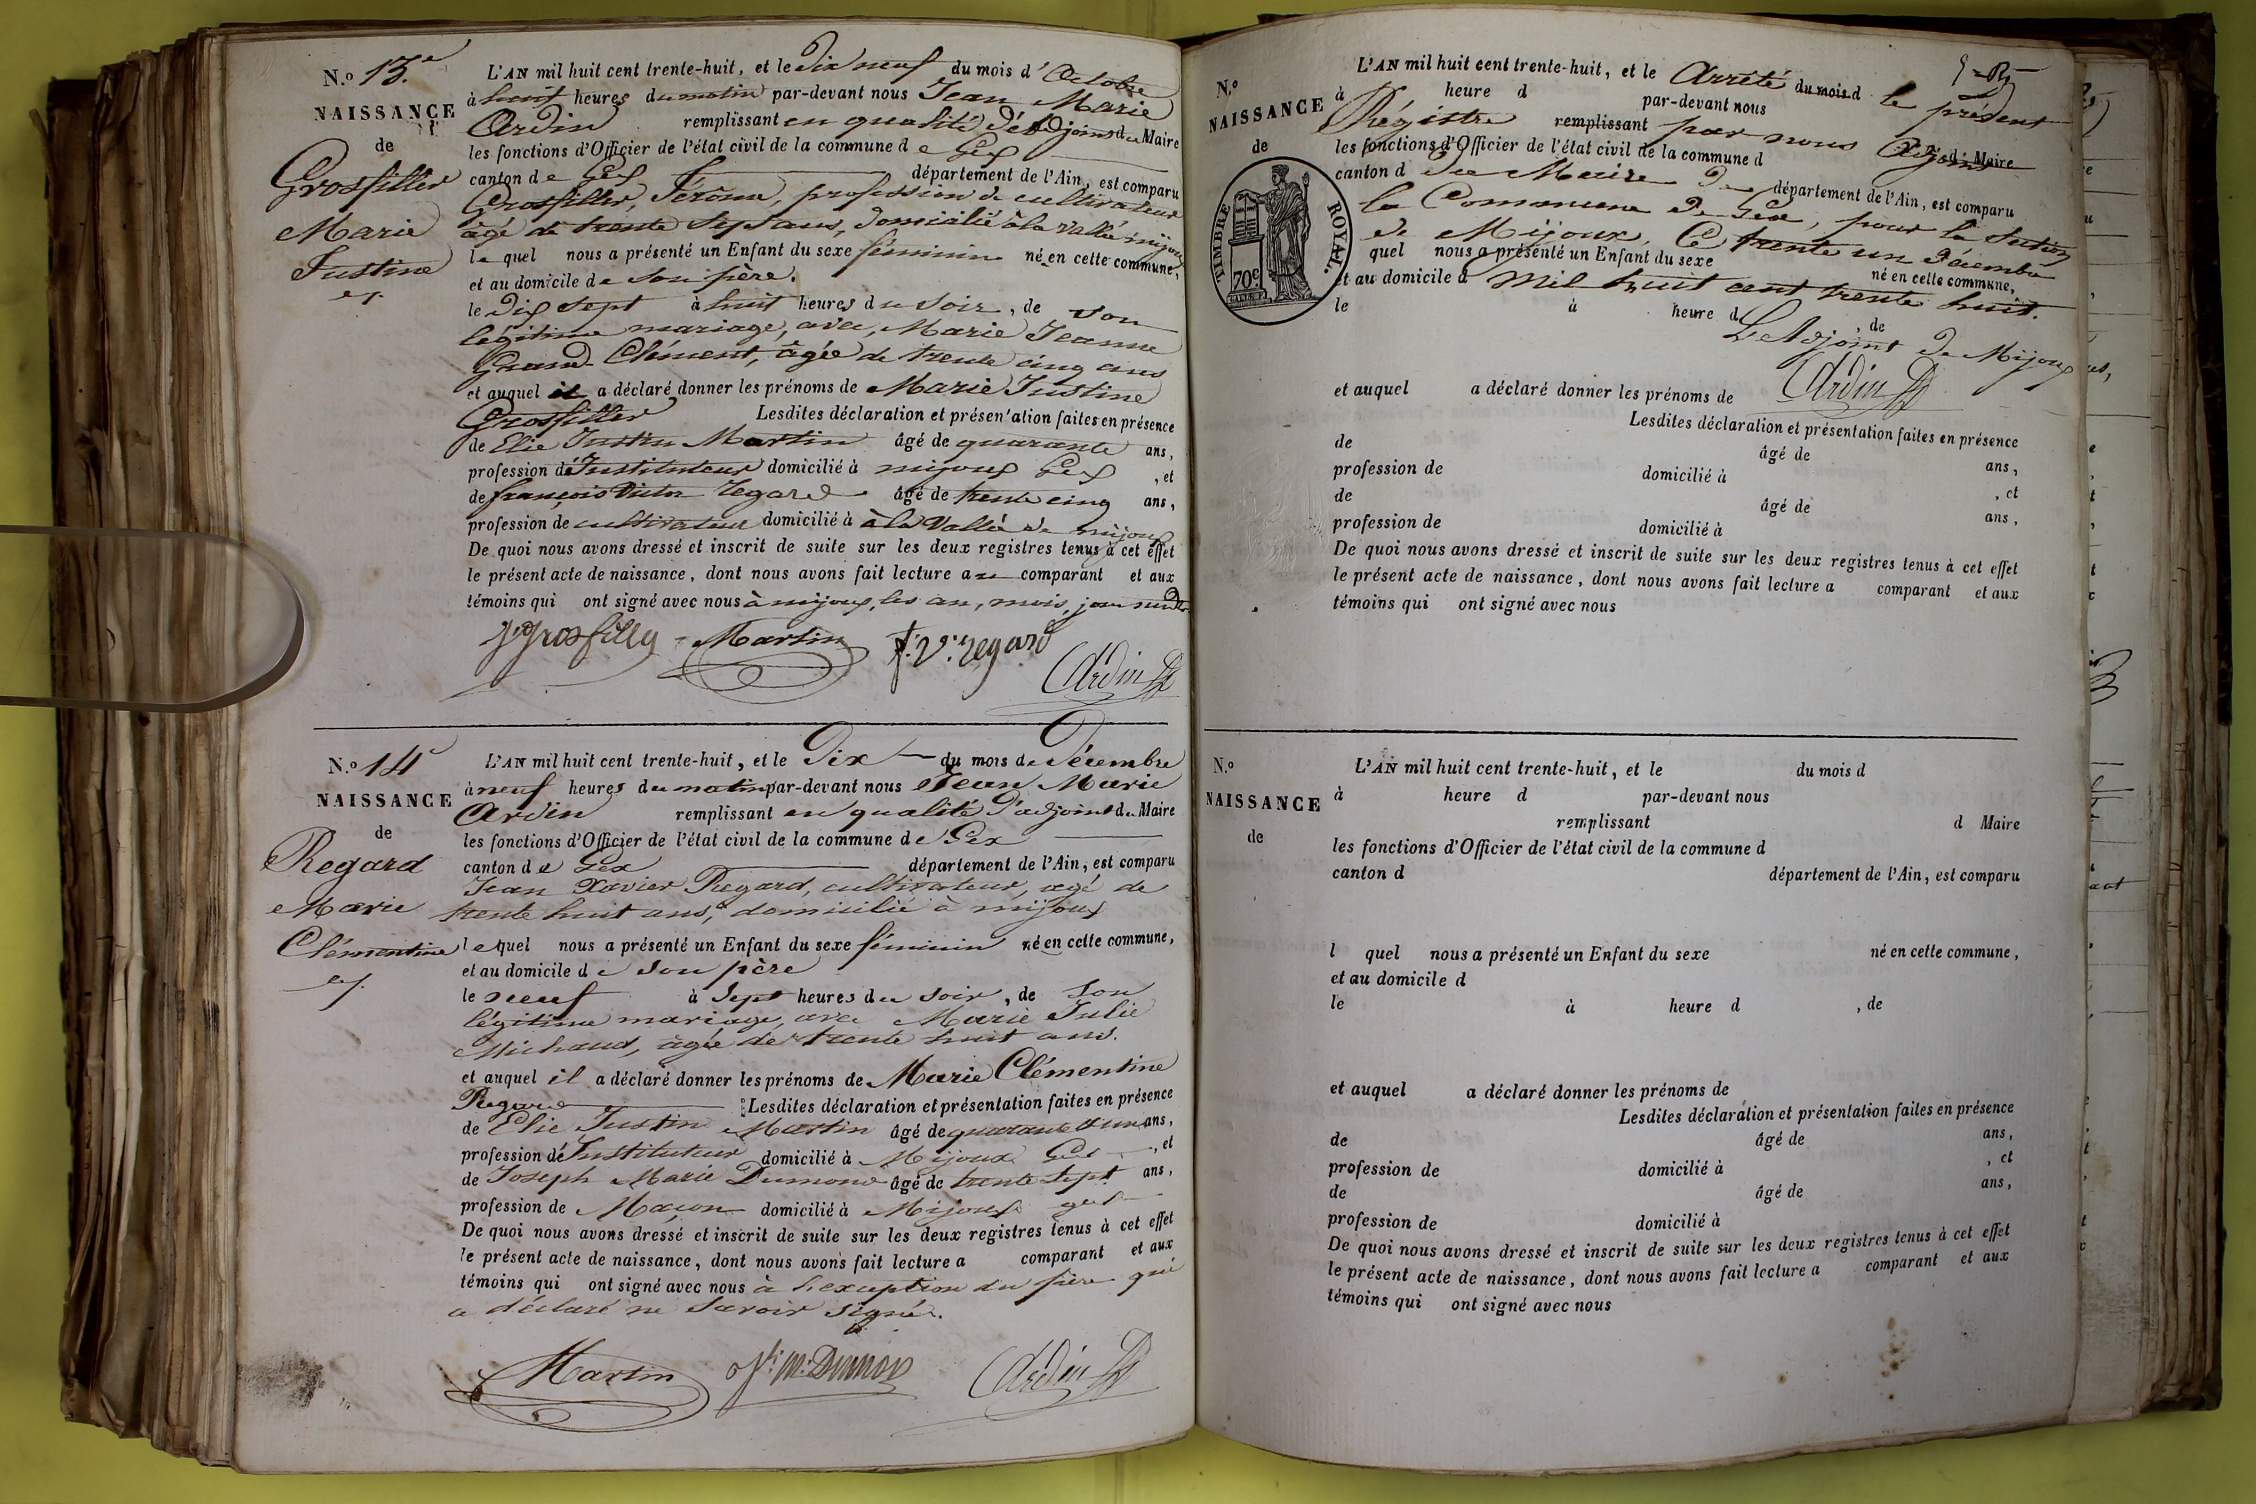 N.o 13.e
NAISSANCE
de
Grosfiller
Marie
Justine
L'AN mil huit cent trente-huit, et le Dix neuf du mois d'Octobre
à huit heures du matin par-devant nous Jean Marie
Ardin remplissant en qualité d'adjoint du Maire
les fonctions d'Officier de l'état civil de la commune de Gex
canton de Gex département de l'Ain, est comparu
Grosfiller, Jérôme, profession de cultivateur
âgé de trente sept ans, domicilié à la vallé mijoux
le quel nous a présenté un Enfant du sexe féminin né en cette commune,
et au domicile de son père.
le Dix sept à huit heures du soir, de son
légitime mariage, avec, Marie Jeanne
Grand-Clément, âgée de trente cinq ans
et auquel il a déclaré donner les prénoms de Marie Justine
Grosfiller Lesdites déclaration et présen'ation faites en présence
de Elie Justin Martin âgé de quarante ans,
profession d'Instituteur domicilié à mijoux Gex, et
de françois Victor Regard âgé de trente cinq ans,
profession de cultivateur domicilié à à la Vallé de mijoux
De quoi nous avons dressé et inscrit de suite sur les deux registres tenus à cet effet
le présent acte de naissance, dont nous avons fait lecture au comparant et aux
témoins qui ont signé avec nous à mijoux, les an, mois, jour susdits
J. Grosfilley Martin f. V. regard Ardin
N.o 14
NAISSANCE
de
Regard
Marie
Clémentine
L'AN mil huit cent trente-huit, et le Dix du mois de Décembre
à neuf heures du matin par-devant nous Jean Marie
Ardin remplissant en qualité d'adjoint du Maire
les fonctions d'Officier de l'état civil de la commune de Gex
canton de Gex département de l'Ain, est comparu
Jean Xavier Regard, cultivateur, agé de
trente huit ans, domicilié à mijoux
lequel nous a présenté un Enfant du sexe féminin né en cette commune,
et au domicile de son père
le neuf à Sept heures du soir, de son
légitime mariage, avec Marie Julie
Michaud, âgée de trente huit ans.
et auquel il a déclaré donner les prénoms de Marie Clémentine
Regard Lesdites déclaration et présentation faites en présence
de Elie Justin Martin âgé de quarante d'un ans,
profession d'Instituteur domicilié à Mijoux Gex, et
de Joseph Marie Dumond âgé de trente sept ans,
profession de Maçon domicilié à Mijoux gex
De quoi nous avons dressé et inscrit de suite sur les deux registres tenus à cet effet
le présent acte de naissance, dont nous avons fait lecture a comparant et aux
témoins qui ont signé avec nous à l'exception du père qui
a déclaré ne savoir signé.
Martin J. M. Dumon Ardin
N.o
NAISSANCE
de
TIMBRE ROYAL.
70c
L'AN mil huit cent trente-huit, et le Arrêté du mois d le présent
à heure d par-devant nous
Régistre remplissant par nous Adjoint d Maire
les fonctions d'Officier de l'état civil de la commune d
canton d du Maire de département de l'Ain, est comparu
la Commune de Gex, pour la Section
de Mijoux, Ce trente un Décembre
quel nous a présenté un Enfant du sexe né en cette commune,
et au domicile d mil huit cent trente huit.
le à heure d, de
L'Adjoint de Mijoux
et auquel a déclaré donner les prénoms de Ardin
Lesdites déclaration et présentation faites en présence
de âgé de ans,
profession de domicilié à, et
de âgé de ans,
profession de domicilié à
De quoi nous avons dressé et inscrit de suite sur les deux registres tenus à cet effet
le présent acte de naissance, dont nous avons fait lecture a comparant et aux
témoins qui ont signé avec nous
N.o
NAISSANCE
de
L'AN mil huit cent trente-huit, et le du mois d
à heure d par-devant nous
remplissant d Maire
les fonctions d'Officier de l'état civil de la commune d
canton d département de l'Ain, est comparu
l quel nous a présenté un Enfant du sexe né en cette commune,
et au domicile d
le à heure d, de
et auquel a déclaré donner les prénoms de
Lesdites déclaration et présentation faites en présence
de âgé de ans,
profession de domicilié à, et
de âgé de ans,
profession de domicilié à
De quoi nous avons dressé et inscrit de suite sur les deux registres tenus à cet effet
le présent acte de naissance, dont nous avons fait lecture a comparant et aux
témoins qui ont signé avec nous